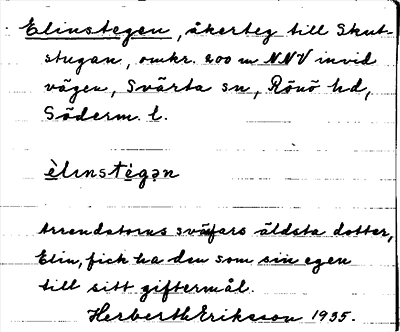 Elinstegen, åkerteg till Skut-
stugan, omkr. 200 m NNV invid
vägen, Svärta sn, Rönö hd,
Söderm. l.
èlınstégən
Arrendatorns svärfars äldsta dotter,
Elin, fick ha den som sin egen
till sitt giftermål.
Herberth Eriksson 1935.